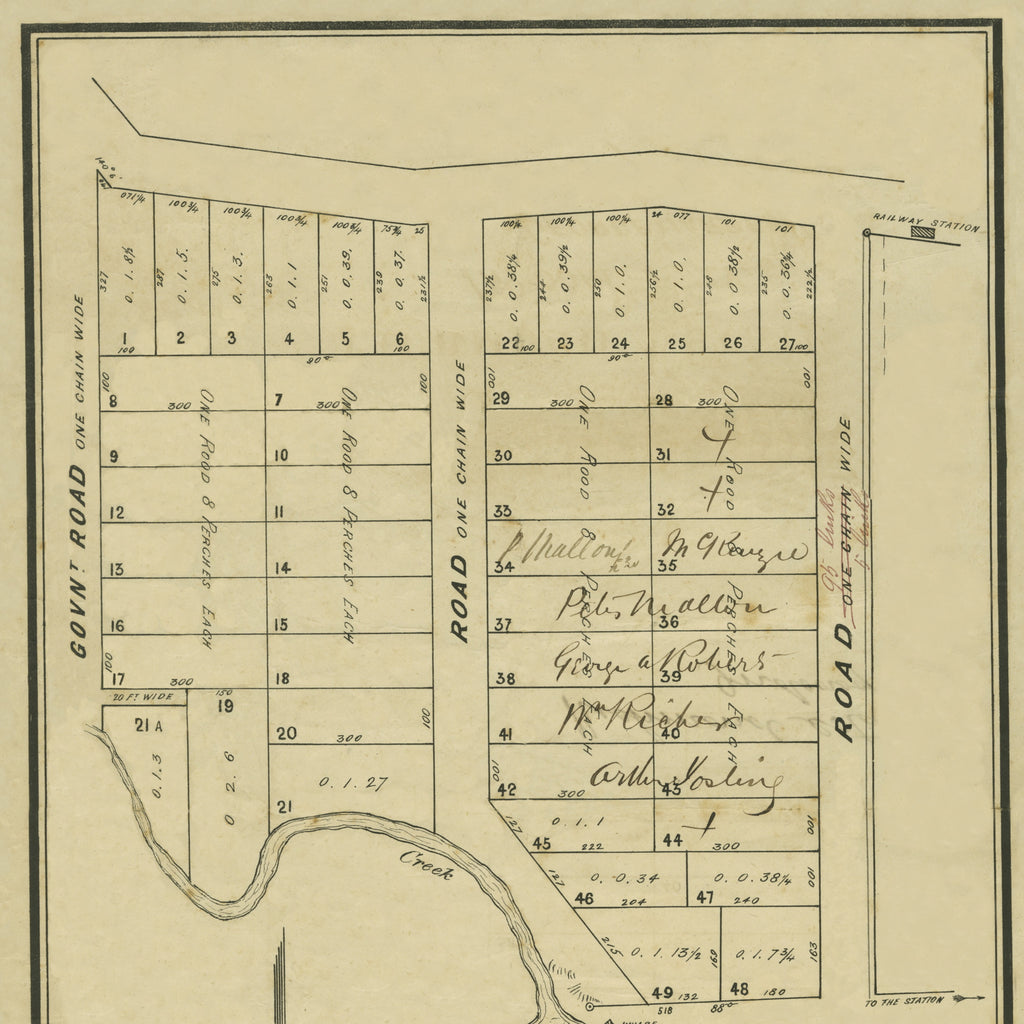 RAILWAY STATION
071¼ 100¾ 100¾ 100¾ 100¾ 75¾ 25
100¼ 100¼ 100¼ 24 077 101 101
327 0. 1. 8½ 287 0. 1. 5. 275 0. 1. 3. 263 0. 1. 1 251 0. 0. 39. 239 0. 0. 37. 231½
237½ 0. 0. 38¼ 244 0. 0. 39½ 250 0. 1. 0. 256½ 0. 1. 0. 246 0. 0 38½ 235 0. 0. 36¼ 222½
1 2 3 4 5 6
22 23 24 25 26 27
100 100 100 100
90° 90°
GOVNT. ROAD ONE CHAIN WIDE
ROAD ONE CHAIN WIDE
ROAD ONE CHAIN WIDE
95 links
ONE ROOD 8 PERCHES EACH
ONE ROOD 8 PERCHES EACH
ONE ROOD 8 PERCHES EACH
ONE ROOD PERCHES EACH
100 8 300 7 300 100
100 29 300 28 300 100
9 10 30 31
12 11 33 32
13 14 34 35
Mallon McKenzie
16 15 37 36
Peter Mallon
100 17 300 18 38 39
George A Roberts
20 FT WIDE 150
21 A 19 20 300 100 41 40
Wm Richer
0. 1. 3 0 2. 6 0. 1. 27 21
100 42 300 43
Arthur Gosling
127 0. 1. 1 45 222 44 300 100
Creek
127 0. 0. 34 46 204 0. 0. 38¼ 47 240 100
215 0. 1. 13½ 169 0. 1. 7¾ 163
49 132 48 180
518 88°
TO THE STATION